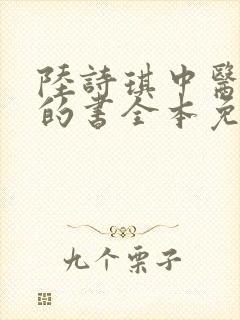 陸詩琪中醫
的書全本免
九个栗子